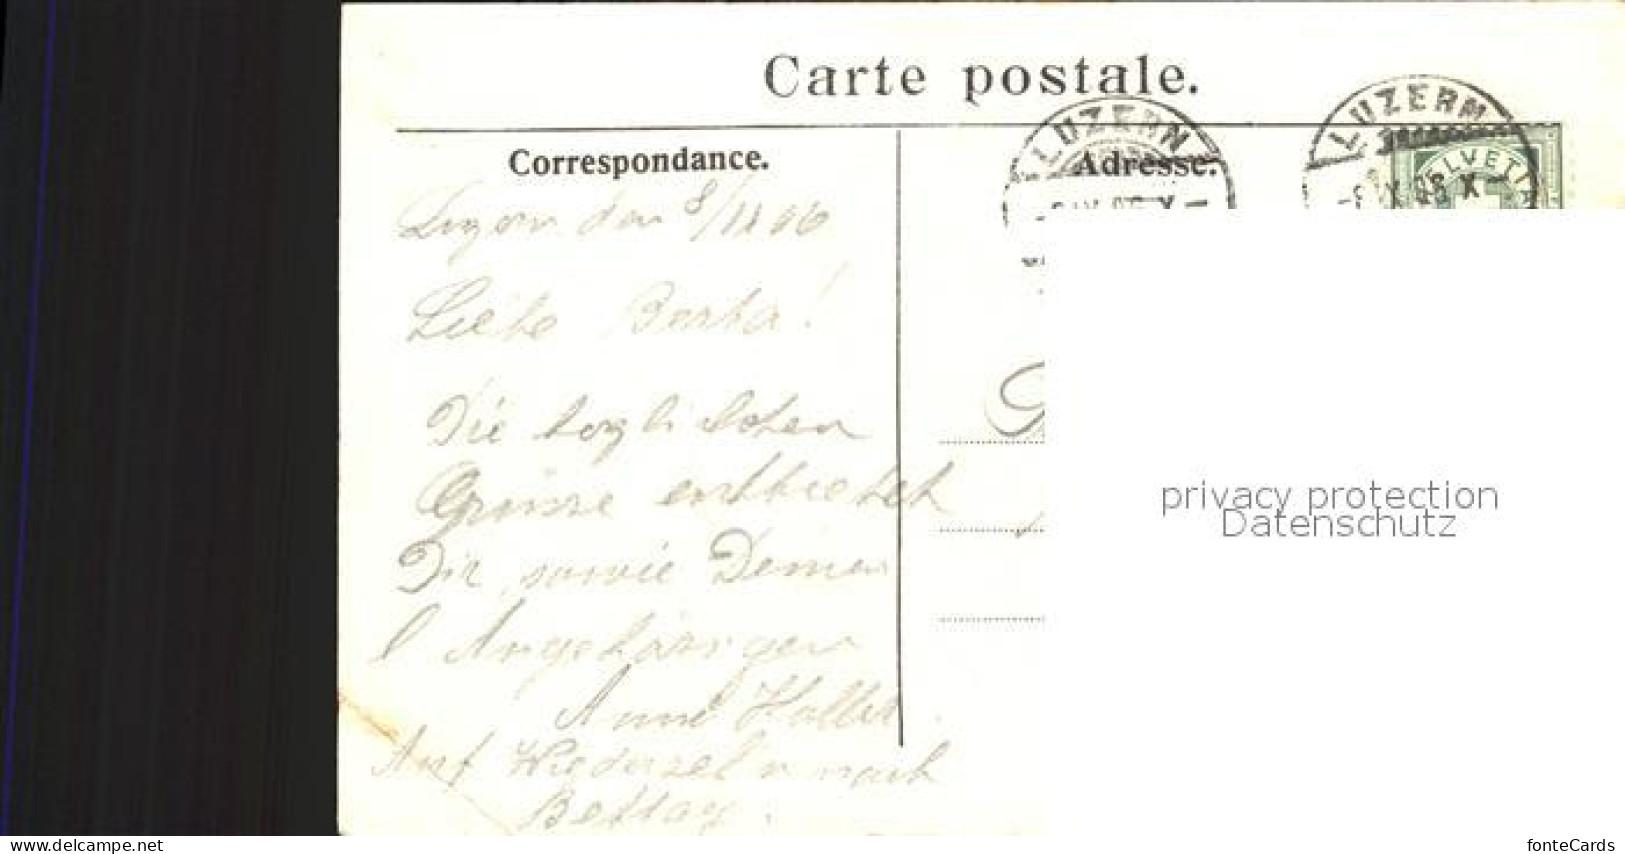 Carte postale.
Correspondance.
Adresse:
LUZERN
LUZERN
HELVETIA
Luzern den 8/IX 06
Liebe Berta!
Die herzlichsten
Grüsse entbietet
Dir sowie Deinen
l Angehörigen
Auf Wiedersehn nach
Bettag.
privacy protection
Datenschutz
www.delcampe.net
fonteCards